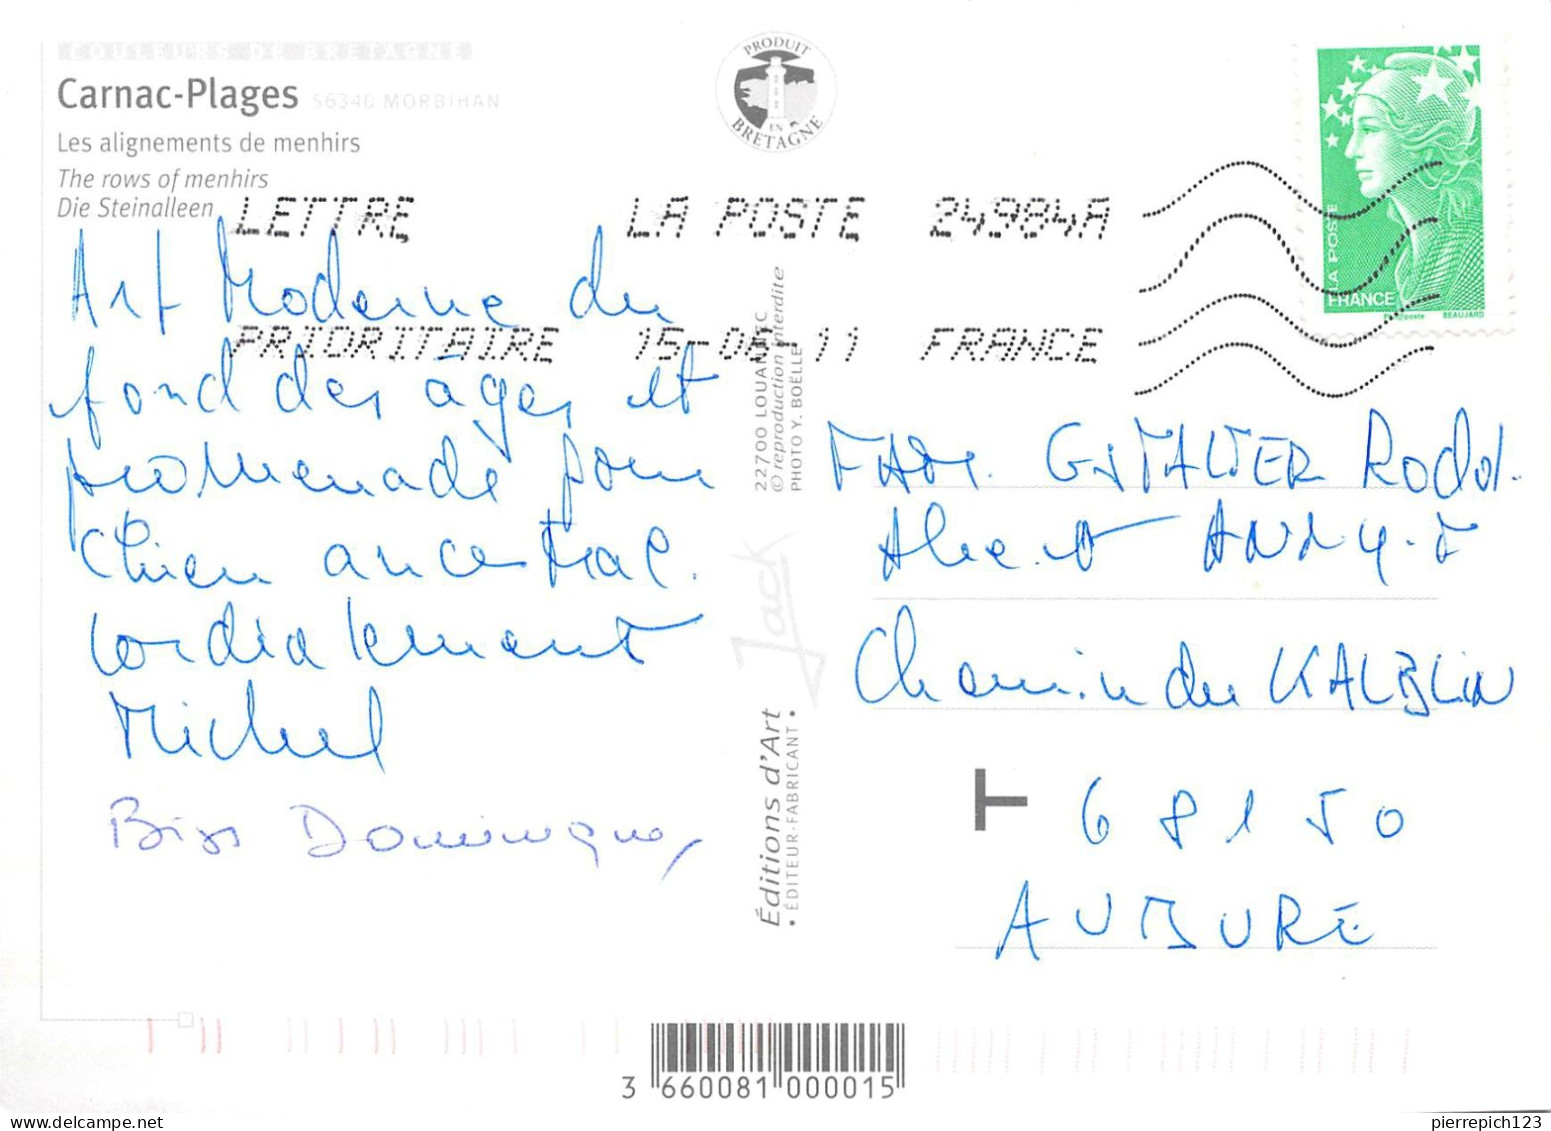 COULEURS DE BRETAGNE
Carnac-Plages 56340 MORBIHAN
Les alignements de menhirs
The rows of menhirs
Die Steinalleen
PRODUIT
EN
BRETAGNE
LA POSTE
FRANCE
Phil@poste
BEAUJARD
LETTRE LA POSTE 24984A
PRIORITAIRE 15-08-11 FRANCE
Art Moderne du
fond des âges et
promenade pour
Chien ancestral.
Cordialement
Michel
Bises Dominique
22700 LOUANNEC
© reproduction interdite
PHOTO Y. BOËLLE
Jack
Éditions d'Art
• ÉDITEUR-FABRICANT •
Rodol.
Chemin du KALBLIN
T 68150
AUBURE
3 660081 000015
pierrepich123